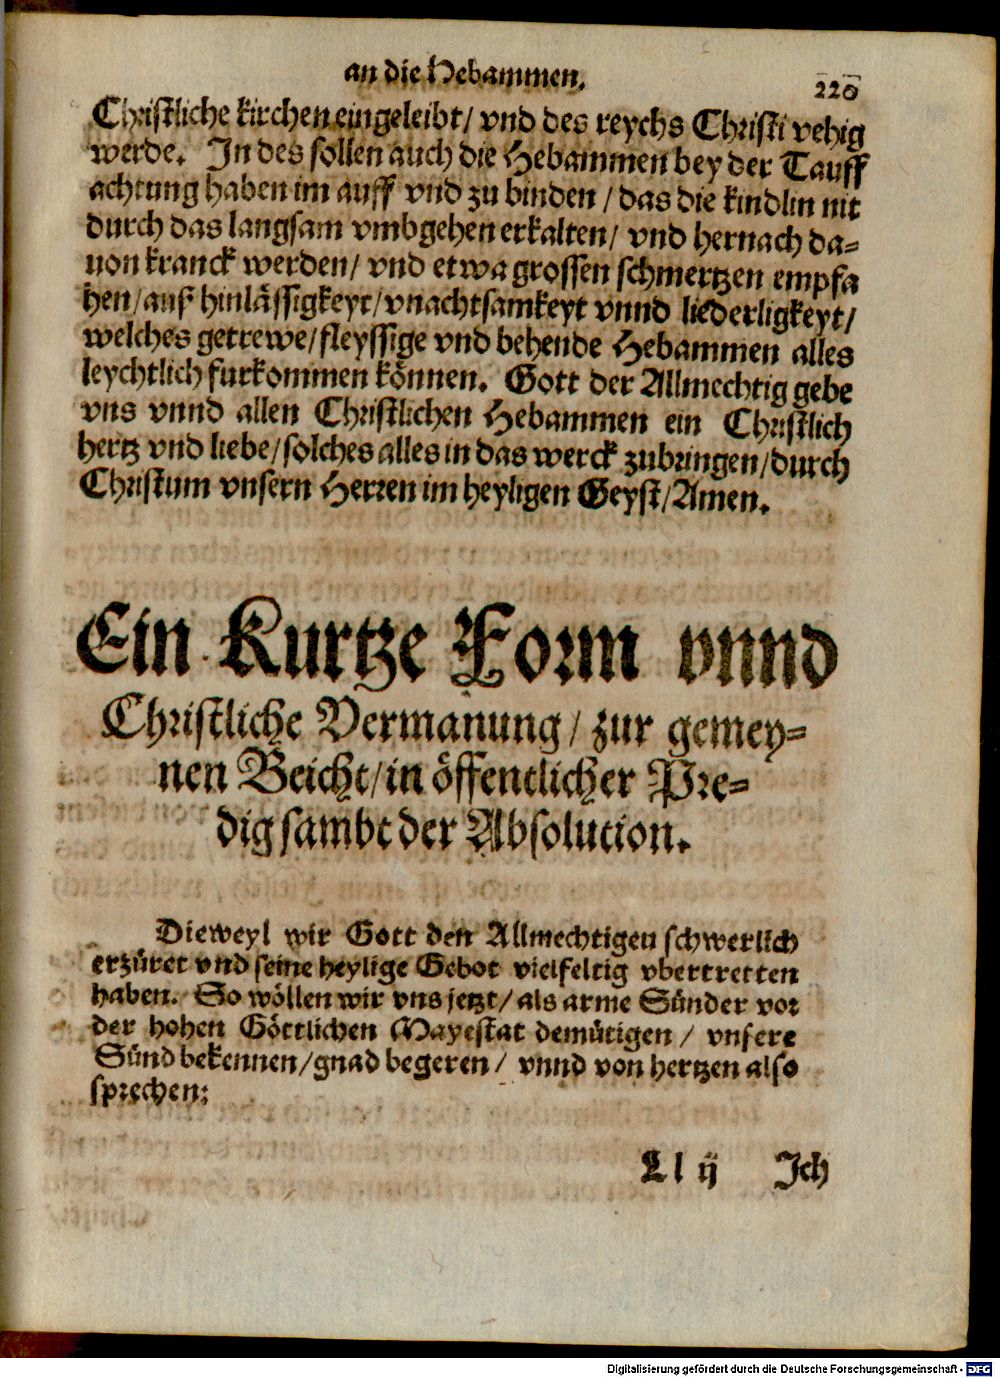 an die Hebammen.
220
Christliche kirchen eingeleibt/ vnd des reychs Christi vehig
werde. In des sollen auch die Hebammen bey der Tauff
achtung haben im auff vnd zu binden / das die kindlin nit
durch das langsam vmbgehen erkalten/ vnd hernach da=
uon kranck werden/ vnd etwa grossen schmertzen empfa
hen/auß hinlässigkeyt/vnachtsamkeyt vnnd liederligkeyt/
welches getrewe/fleyssige vnd behende Hebammen alles
leychtlich furkommen können. Gott der Allmechtig gebe
vns vnnd allen Christlichen Hebammen ein Christlich
hertz vnd liebe/solches alles in das werck zubringen/durch
Christum vnsern Herren im heyligen Geyst/Amen.
Ein Kurtze Form vnnd
Christliche Vermanung/ zur gemey=
nen Beicht/in öffentlicher Pre=
dig sambt der Absolution.
Dieweyl wir Gott den Allmechtigen schwerlich
erzüret vnd seine heylige Gebot vielfeltig vbertretten
haben. So wöllen wir vns jetzt/ als arme Sünder vor
der hohen Göttlichen Mayestat demütigen / vnsere
Sünd bekennen/gnad begeren / vnnd von hertzen also
sprechen:
Ll ij Ich
Digitalisierung gefördert durch die Deutsche Forschungsgemeinschaft - DFG